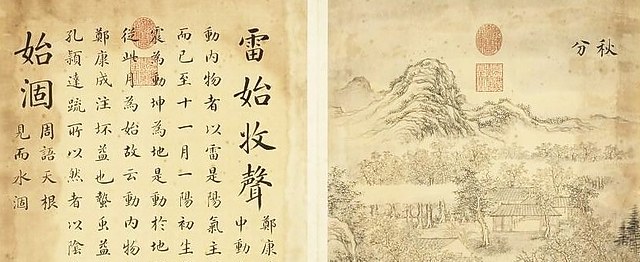 秋分
雷始收聲
鄭康
中動
動內物者以雷是陽氣主
而已至十一月一陽初生
震為動坤為地是動於地
從此月為始故云動內物
鄭康成注坏益也蟄虫益
孔穎達疏所以然者以陰
始涸
周語天根
見而水涸